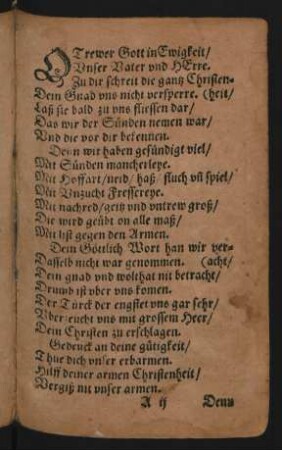 O Trewer Gott in Ewigkeit/
Vnser Vater vnd HErre.
Zu dir schreit die gantz Christen-
Dein Gnad vns nicht versperre. (heit/
Laß sie bald zu vns fliessen dar/
Das wir der Sünden nemen war/
Vnd die vor dir bekennen.
Denn wir haben gesündigt viel/
Mit Sünden mancherleye.
Mit Hoffart/neid/ haß/ fluch vñ spiel/
Mit Vnzucht Fressereye.
Mit nachred/geitz vnd vntrew groß/
Die wird geübt on alle maß/
Mit list gegen den Armen.
Dein Göttlich Wort han wir ver-
Dasselb nicht war genommen. (acht/
Dein gnad vnd wolthat nit betracht/
Drumb ist vber vns komen.
Der Türck der engstet vns gar sehr/
Vberzeucht vns mit grossem Heer/
Dein Christen zu erschlagen.
Gedenck an deine gütigkeit/
Thue dich vnser erbarmen.
Hilff deiner armen Christenheit/
Vergiß nit vnser armen.
A ij Denn